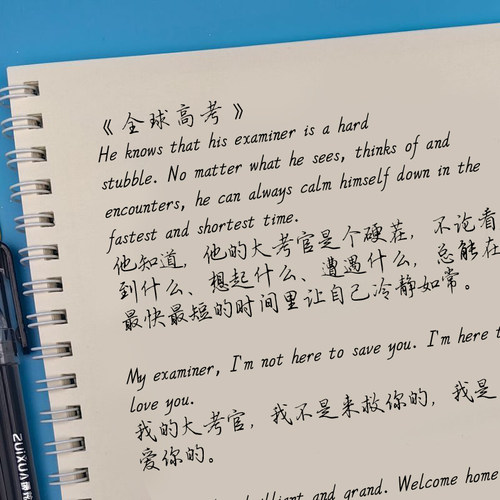 《全球高考》
He knows that his examiner is a hard
stubble. No matter what he sees, thinks of and
encounters, he can always calm himself down in the
fastest and shortest time.
他知道，他的大考官是个硬茬，不论看
到什么、想起什么、遭遇什么，总能在
最快最短的时间里让自己冷静如常。
My examiner, I'm not here to save you. I'm here t
love you.
我的大考官，我不是来救你的，我是
爱你的。
and grand. Welcome home
ZUiXUA